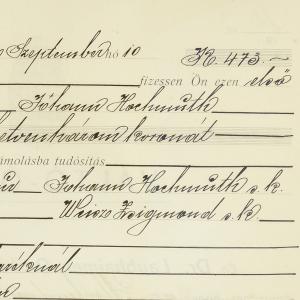 Szeptember hó 10 K 473.—
fizessen Ön ezen első
Johann Hochmuth
hetvenhárom koronát
számolásba tudósítás
Johann Hochmuth s.k.
Weisz Zsigmond s.k